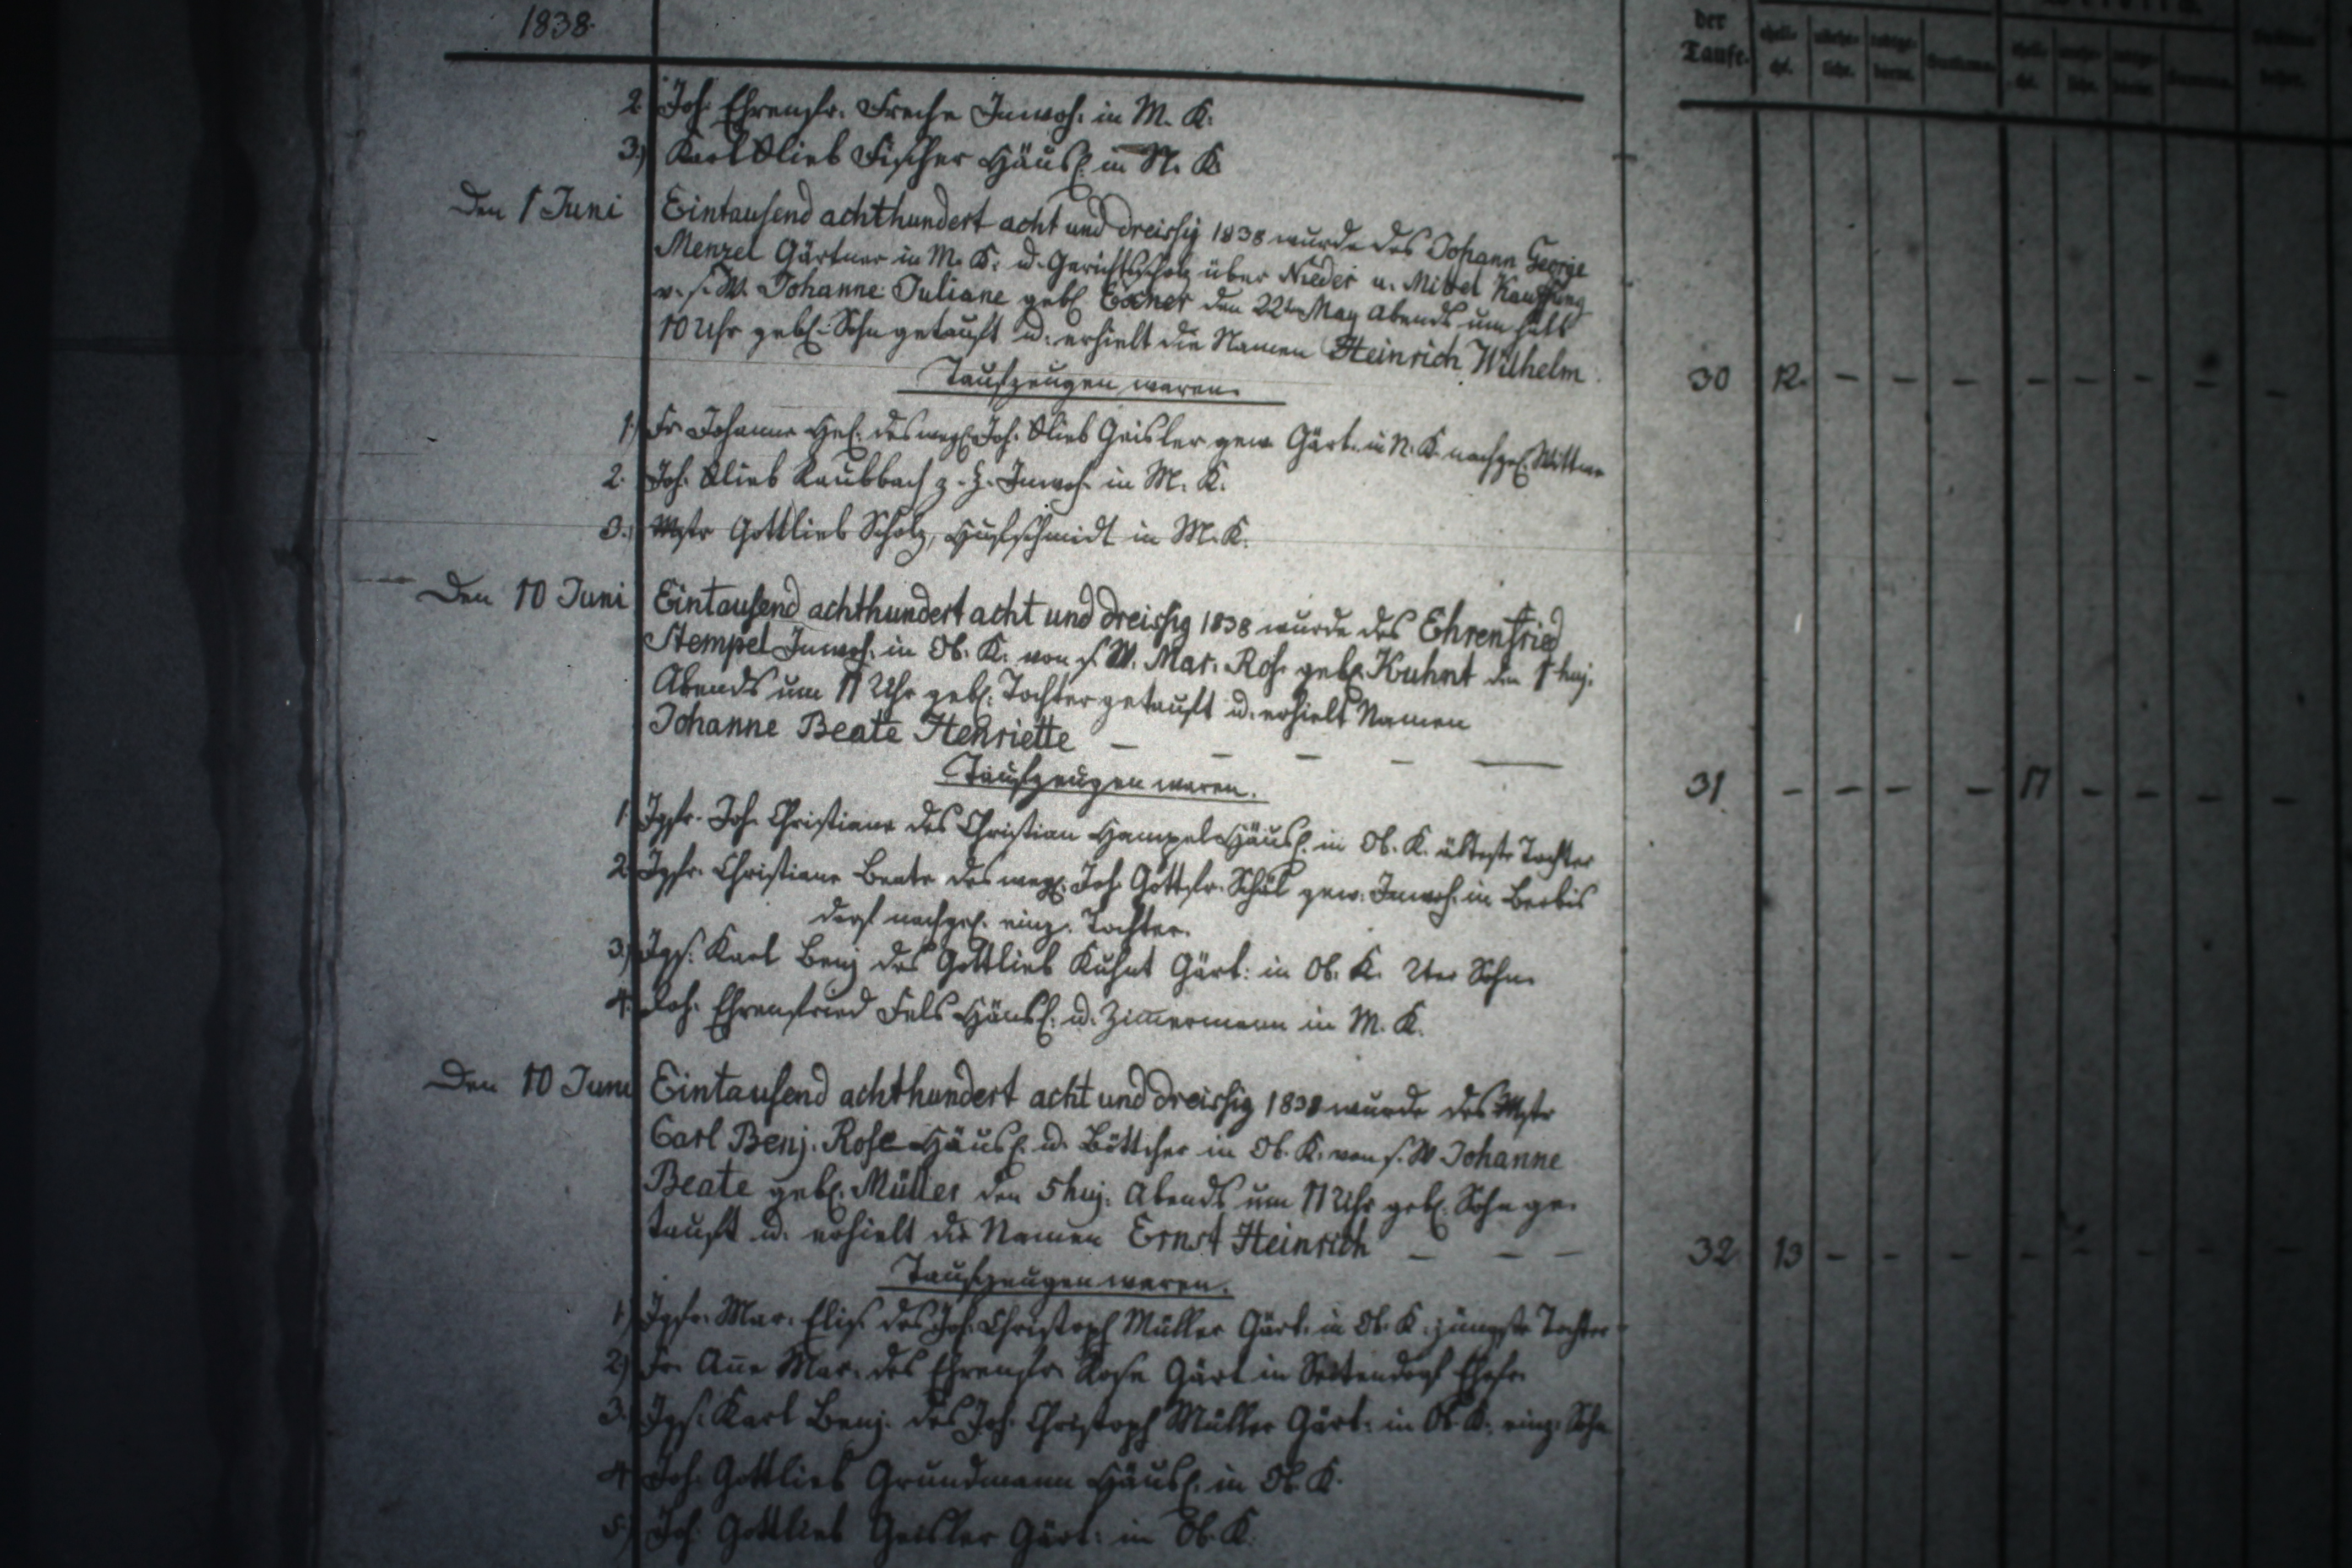 1838.
der
Taufe.
2. Joh. Ehrenfr. Freche Inwoh. in M. K.
3.) Karl Glieb Fischer Häusl. in N. K.
Den 1 Juni Eintausend achthundert acht und dreissig 1838 wurde des Johann George
Menzel Gärtner in M. K. u. Gerichtsscholz über Nieder u. Mittel Kauffung
v. s. W. Johanne Juliane geb. Exner den 22ten May Abends um halb
10 Uhr geb. Sohn getauft u. erhielt die Namen Heinrich Wilhelm
Taufzeugen waren. 30 12. — — — — — — — —
1.) Fr. Johanne Hel. des wegl. Joh. Glieb Geisler gew. Gärt. in N. K. nachgel. Wittwe
2. Joh. Glieb Raubbach z. Z. Inwoh. in M. K.
3.) Mstr Gottlieb Scholz, Hufschmidt in M. K.
Den 10 Juni Eintausend achthundert acht und dreissig 1838 wurde des Ehrenfried
Stempel Inwoh. in Ob. K. von s. W. Mar. Ros. geb. Kuhnt den 1 huj.
Abends um 11 Uhr geb. Tochter getauft u. erhielt Namen
Johanne Beate Henriette — — — — —
Taufzeugen waren. 31. — — — — 11 — — — —
1. Jgfr. Joh. Christiane des Christian Hampel Häusl. in Ob. K. älteste Tochter
2. Jgfr. Christiane Beate des wegl. Joh. Gottfr. Schäl gew. Inwoh. in Berbis
dorf nachgel. einz. Tochter.
3.) Jggs. Karl Benj des Gottlieb Kuhnt Gärt: in Ob. K. 2ter Sohn.
4. Joh. Ehrenfried Fels Häusl. u. Zimmermann in M. K.
Den 10 Juni Eintausend achthundert acht und dreissig 1838 wurde des Mstr
Carl Benj. Rose Häusl. u. Böttcher in Ob. K. von s. W Johanne
Beate geb. Müller den 5 huj. Abends um 11 Uhr geb. Sohn ge-
tauft u. erhielt die Namen Ernst Heinrich — — — 32 13 — — — — — — — —
Taufzeugen waren.
1.) Jgfr. Mar. Elis. des Joh. Christoph Müller Gärt. in Ob. K. jüngste Tochter
2.) Fr. Anne Mar. des Ehrenfr. Rose Gärt in Seitendorf Ehefr.
3. Jggs. Karl Benj. des Joh. Christoph Müller Gärt. in Ob. K. einz. Sohn
4. Joh. Gottlieb Grundmann Häusl. in Ob. K.
5.) Joh. Gottlieb Geisler Gärt: in Ob. K.